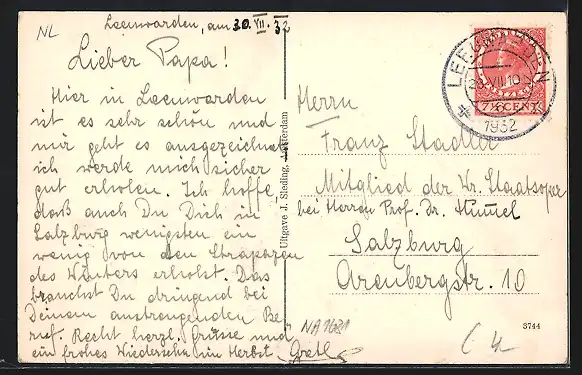 NL
Leeuwarden, am 30. VII. 32
Lieber Papa!
Hier in Leeuwarden
ist es sehr schön und
mir geht es ausgezeichnet
ich werde mich sicher
gut erholen. Ich hoffe,
daß auch Du Dich in
Salzburg wenigsten ein
wenig von den Strapazen
des Winters erholst. Das
brauchst Du dringend bei
Deinem anstrengenden Be
ruf. Recht herzl. Grüsse und
ein frohes Wiedersehn im Herbst. Gretl
NA1681
Uitgave J. Sleding, Amsterdam
LEEUWARDEN
VII 10
1932
7½ CENT
Herrn
Franz Stadler
Mitglied der Wr. Staatsoper
bei Herrn Prof. Dr. Hummel
Salzburg
Arenbergstr. 10
3744